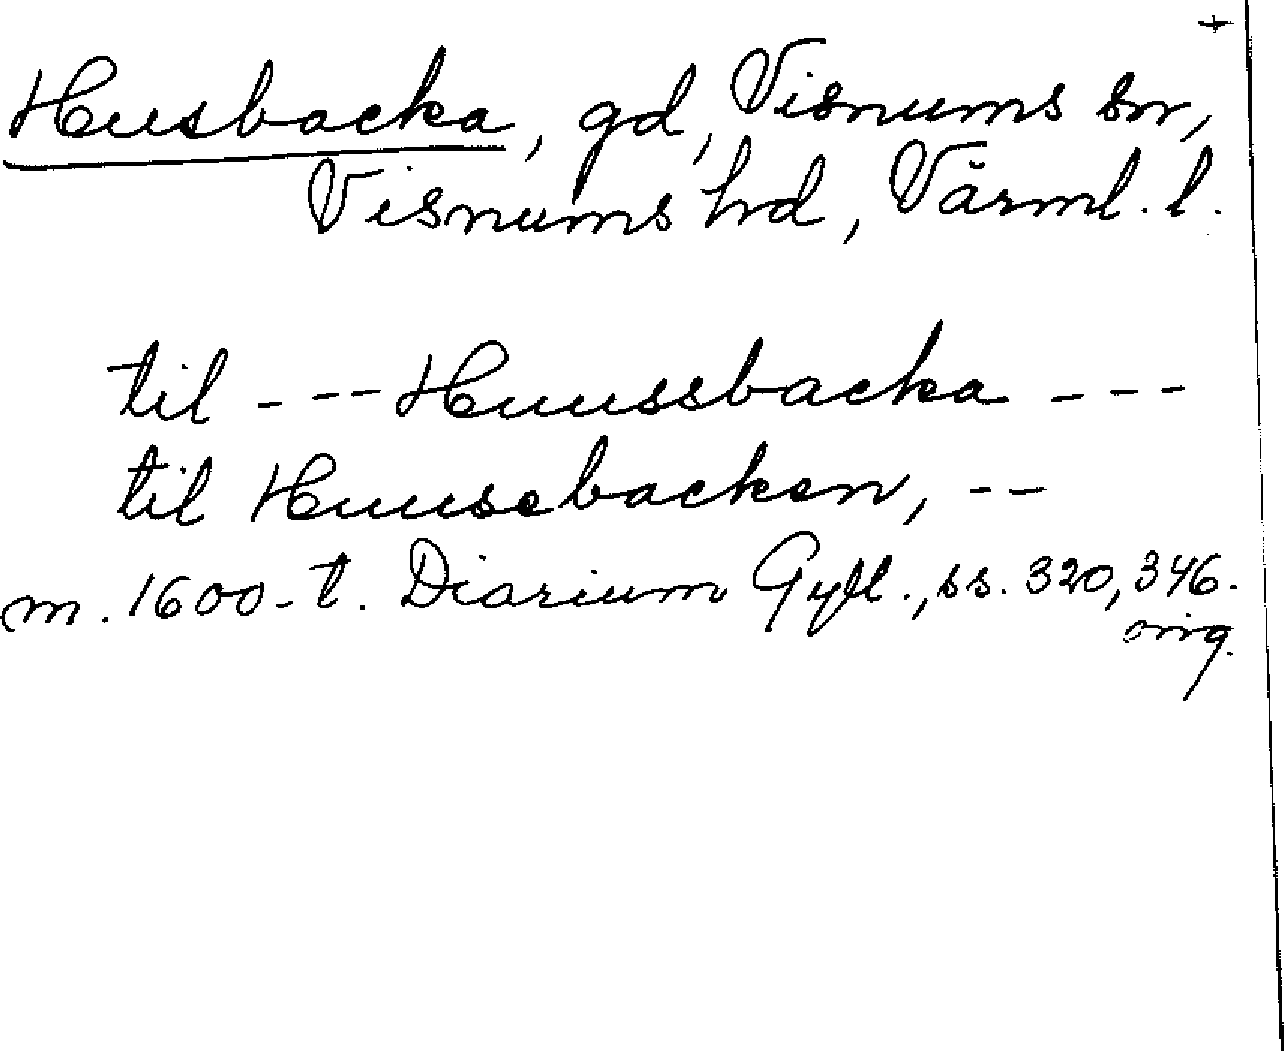 +
Husbacka, gd, Visnums sn,
Visnums hd, Värml. l.
til --- Huussbacka ---
til Huusebacken, --
m. 1600-t. Diarium Gyll., ss. 320, 346.
orig.